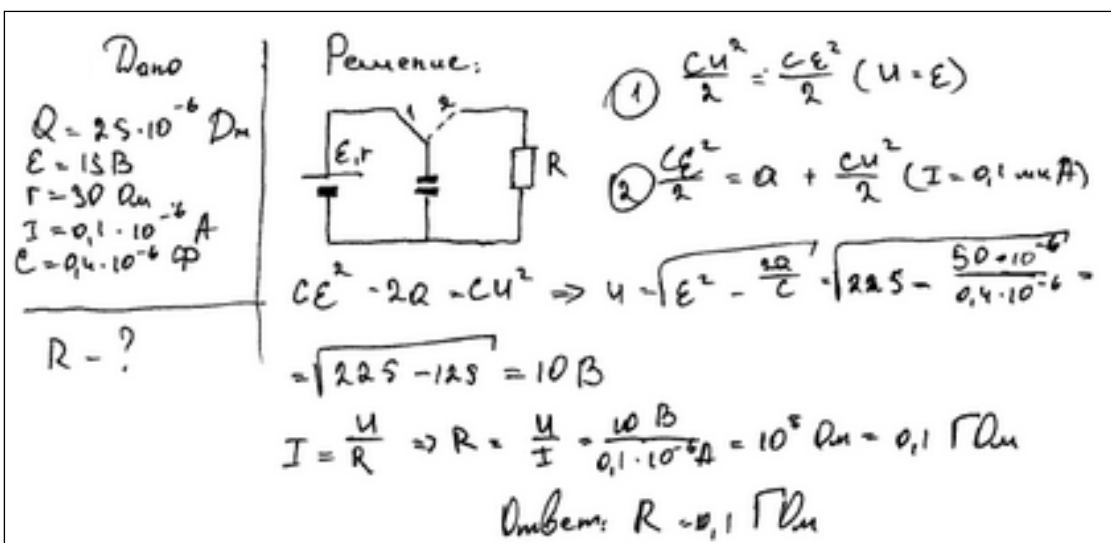 Дано
Q = 25·10⁻⁶ Дж
ε = 15 В
r = 30 Ом
I = 0,1·10⁻⁶ А
C = 0,4·10⁻⁶ Ф
R - ?
Решение:
1 2
ε, r
R
① CU²/2 = Cε²/2 (U = ε)
② Cε²/2 = Q + CU²/2 (I = 0,1 мкА)
Cε² - 2Q = CU² => U = √(ε² - 2Q/C) = √(225 - 50·10⁻⁶/0,4·10⁻⁶) =
= √(225 - 125) = 10 В
I = U/R => R = U/I = 10 В/0,1·10⁻⁶ А = 10⁸ Ом = 0,1 ГОм
Ответ: R = 0,1 ГОм